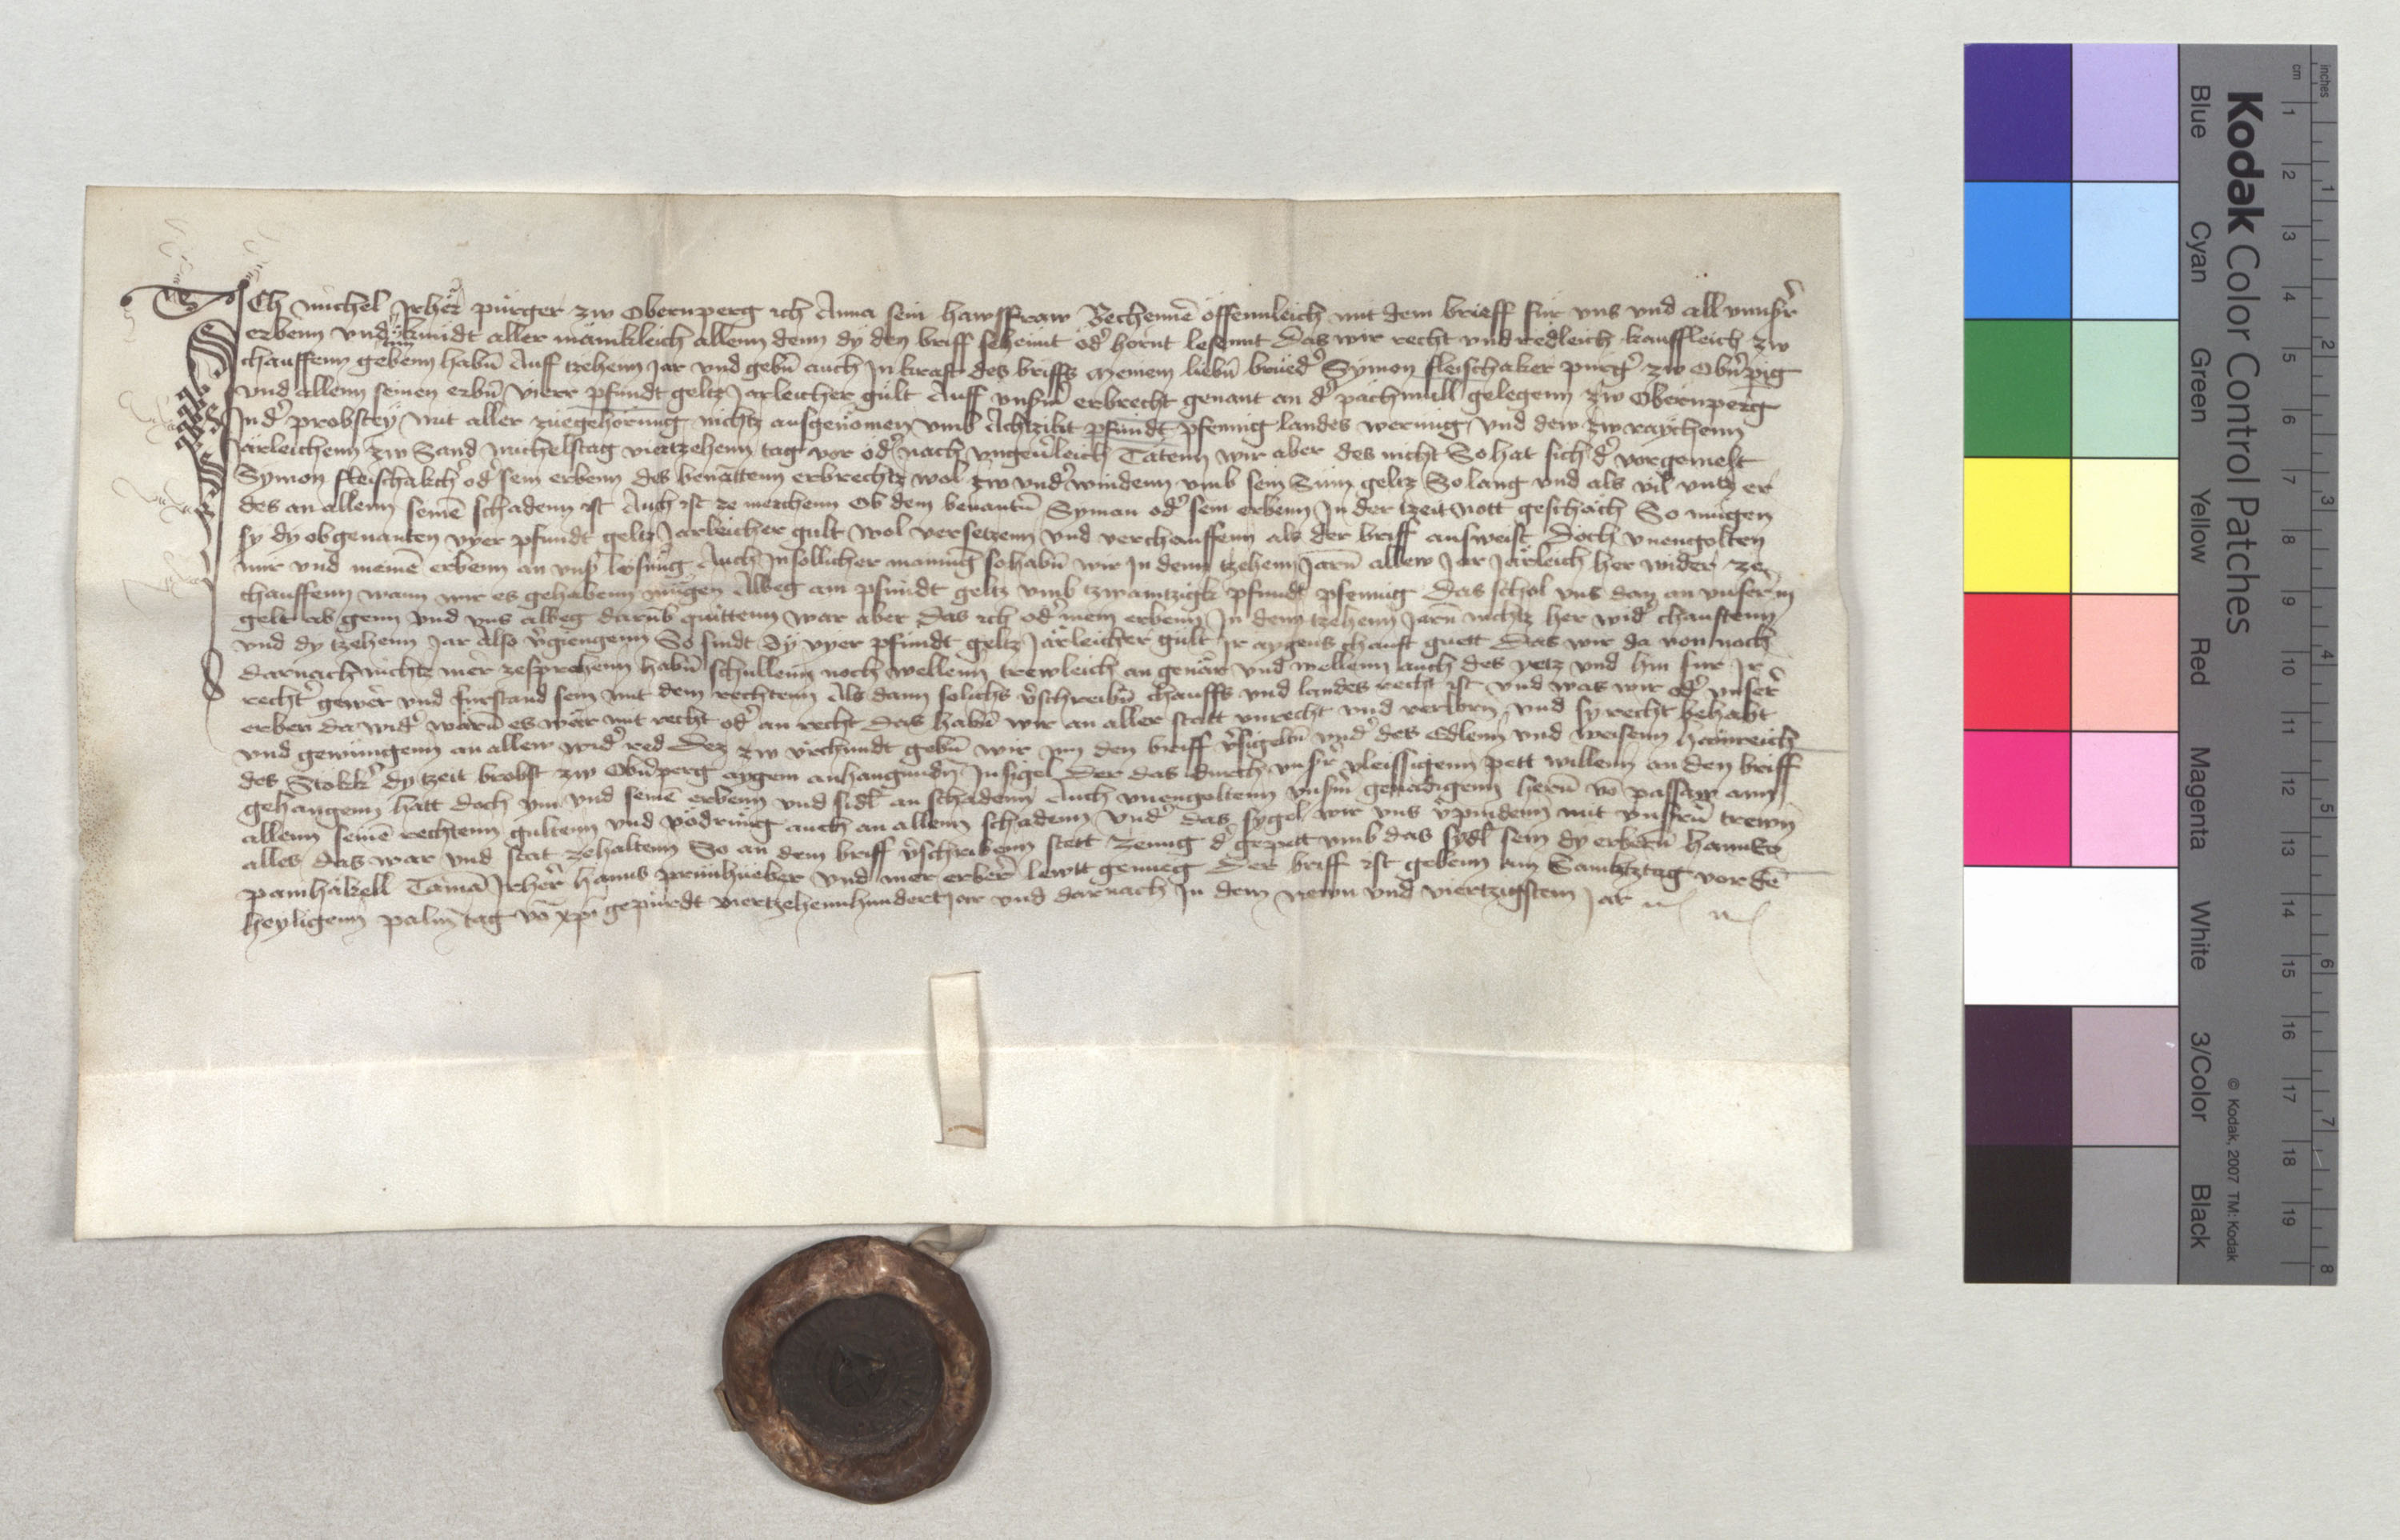 ICh michel Jrher pürger zw Obernperg ich Anna sein hawsfraw Bechennē offennleich mit dem brieff für vns vnd all vnnsr̄
erbenn vnd kundt aller mänikleich allenn denn dÿ den briff sehennt od̓ hörnt lesennt Das wir recht vnd redleich kauffleich zw
chauffenn gebenn habn̄ Auff tzehenn Jar vnd gebn̄ auch Jn kraft des briffs Meinem liebn̄ brued̓ Symon fleischaker purg̓ zw Obn̓pig
vnd allenn seinen erbn̄ vierr pfundt geltz Jarleicher gült Auff vnsm̄ erbrecht genant an d̓ pachmüll gelegenn zw Obernperg
Jn d̓ probsteÿ mit aller zuegehörung nichtz ausgenomen vmb Achtzikt pfundt pfennig landes werung vnd dew zw raÿchenn
Järleichenn zw Sand michelstag viertzehenn tag vor od̓ nach vngeu̓leich Tätenn wir aber des nicht So hat sich d̓ vorgemelt
Symon fleischakch̓ od̓ sein erbenn des benāttenn erbrechtz wol zw vnd̓windenn vmb sein Sum geltz So lang vnd als vil vntz er
des an allenn seinē schadenn ist Auch ist ze merchenn Ob dem benantn̄ Symon od̓ sein erbenn Jn der tzeit nott geschäch So mügen
sy dy obgenanten vyer pfundt geltz Jarleicher gult wol versetzenn vnd verchauffenn als der briff ausweist Doch vnengolten
mir vnd meinē erbenn an vnsr̄ losung Auch Jn sollicher mainūg so habn̄ wir Jn denn tzehenn Jarn̄ allew Jar Järleich her wider ze
chauffenn wann wir es gehabenn mügen Albeg ain pfundt geltz vmb tzwaintzigk pfundt pfennig Das schol vns dan an vnserm
gelt ab genn vnd vns albeg darūb quittenn war aber das ich od̓ mein erbenn Jn denn tzehenn Jarn̄ nichtz her wid̓ chauftenn
vnd dy tzehenn Jar Also v̓giengenn So sindt dÿ vyer pfundt geltz Järleicher gult Jr aygens chauft guett Das wir da von noch
darnach nichtz mer zesprechenn habn̄ schullenn noch wellenn trewleich an geuär vnd wellenn auch des yetz vnd hin für Jr
recht̓ gewer̄ vnd furstand sein mit dem rechtenn Als dann solichs v̓schreibn̄ chauffs vnd landes recht ist vnd was wir od̓ vnser̄
erben da wid̓ wärn̄ es wär mit recht od̓ an recht das habn̄ wir an aller statt vnrecht vnd verlorn vnd sy recht behabt
vnd gewüngenn an allew wid̓ red Dez zw vrchundt gebn̄ wir Jm den briff v̓sigeltn̄ vnd̓ des Edlenn vnd weisenn hainreich
des Stokk̓ dy tzeit brobst zw Obn̓perg aygem anhangundn̄ Jnsigel Der das durch vnsr̄ vleissigenn pett willenn an den briff
gehangenn hatt doch ym vnd seinē erbenn vnd sidl̄ an schadenn Auch vnengoltenn vnsm̄ genädigenn hern̄ vō passaw ann
allenn seinē rechtenn gultenn vnd vodrung auch an allenn schadenn vnd̓ das sygel wir vns v̓pindenn mit vnsrn̄ trewn̄
alles das war vnd stat zehaltenn So an dem briff v̓schribenn stett Zeüng d̓ gepett vmb das sydl̄ sein dy erbern̄ hanns
pamhäkell Tamā Jrher̄ hanns prünhueber vnd mer erber̄ lewtt genueg Der briff ist gebenn am Sambtztag vor dē
heyligenn palm̄ tag vō xp̄i gepürdt viertzehennhundert Jar vnd darnach Jn dem newn vnd viertzigstem Jar
Kodak Color Control Patches
Blue Cyan Green Yellow Red Magenta White 3/Color Black
© Kodak, 2007 TM: Kodak
inches 1 2 3 4 5 6 7 8
cm 1 2 3 4 5 6 7 8 9 10 11 12 13 14 15 16 17 18 19